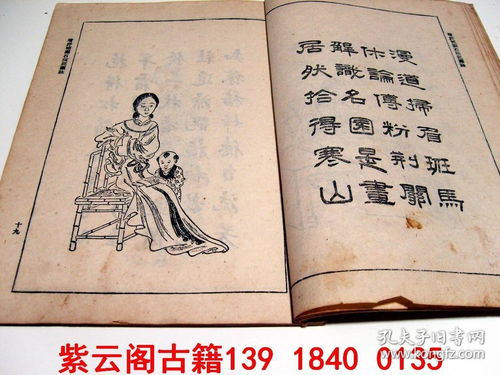 漫道掃眉班馬
休論傅粉荊關
解識名園是畫
居然拾得寒山
十九
孔夫子旧书网
紫云阁古籍139 1840 0135